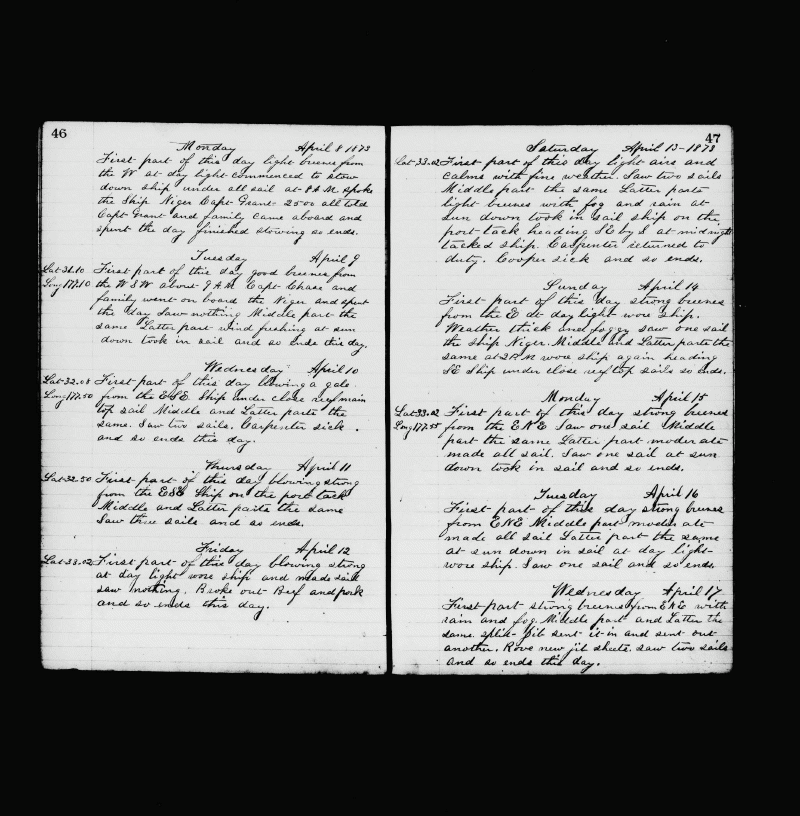 46
Monday April 8 1873
First part of this day light breezes from
the W at day light commenced to stow
down ship under all sail at 8 AM spoke
the Ship Niger Capt Grant 2500 all told
Capt Grant and family came aboard and
spent the day finished stowing so ends.
Tuesday April 9
Lat 31.10 First part of this day good breezes from
Long 177.10 the WSW about 9 AM Capt Chase and
family went on board the Niger and spent
the day saw nothing Middle part the
same Latter part wind freshing at sun
down took in sail and so ends this day.
Wednesday April 10
Lat 32.08 First part of this day blowing a gale
Long 177.50 from the ESE Ship under close reef main
top sail Middle and Latter parts the
same. Saw two sails. Carpenter sick.
and so ends this day.
Thursday April 11
Lat 32.50 First part of this day blowing strong
from the ESE Ship on the port tack
Middle and Latter parts the same
Saw three sails and so ends.
Friday April 12
Lat 33.02 First part of this day blowing strong
at day light wore ship and made sail
saw nothing. Broke out Beef and pork
and so ends this day.
47
Saturday April 13-1873
Lat 33.02 First part of this day light airs and
calms with fine weather. Saw two sails
Middle part the same Latter parts
light breezes with fog and rain at
sun down took in sail ship on the
port tack heading SE by S at midnight
tacked ship. Carpenter returned to
duty. Cooper sick and so ends.
Sunday April 14
First part of this day strong breezes
from the E at day light wore ship.
Weather thick and foggy saw one sail
the ship Niger. Middle and Latter parts the
same at 2 PM wore ship again heading
SE Ship under close reef top sails so ends.
Monday April 15
Lat 33.02 First part of this day strong breezes
Long 177.55 from the ENE Saw one sail Middle
part the same Latter part moderate
made all sail. Saw one sail at sun
down took in sail and so ends.
Tuesday April 16
First part of this day strong breezes
from ENE Middle part moderate
made all sail Latter part the same
at sun down in sail at day light
wore ship. Saw one sail and so ends.
Wednesday April 17
First part strong breezes from ENE with
rain and fog. Middle part and Latter the
same. split jib sent it in and sent out
another. Rove new jib sheets. saw two sails
and so ends this day.